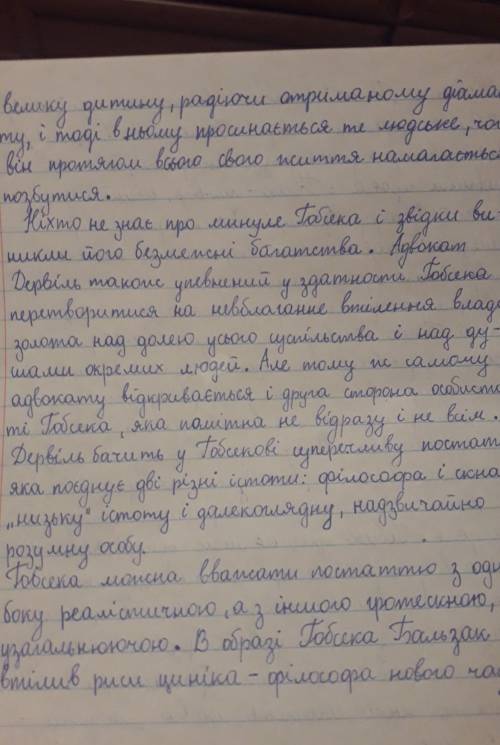 велику дитину, радіючи отриманому діаман
ту, і тоді в ньому просинається те людське, чог
він протягом всього свого життя намагається
позбутися.
Ніхто не знає про минуле Гобсека і звідки ви-
никли його безмежні багатства. Адвокат
Дервіль також упевнений у здатности Гобсека
перетворитися на невблаганне втілення влади
золота над долею усього суспільства і над ду-
шами окремих людей. Але тому ж самому
адвокату відкривається і друга сторона особистос
ті Гобсека, яка помітна не відразу і не всім.
Дервіль бачить у Гобсекові суперечливу постат
яка поєднує дві різні істоти: філософа і скна
„низьку" істоту і далекоглядну, надзвичайно
розумну особу.
Гобсека можна вважати постаттю з одн
боку реалістичною, а з іншого гротескною,
узагальнюючою. В образі Гобсека Бальзак
втілив риси циніка - філософа нового час